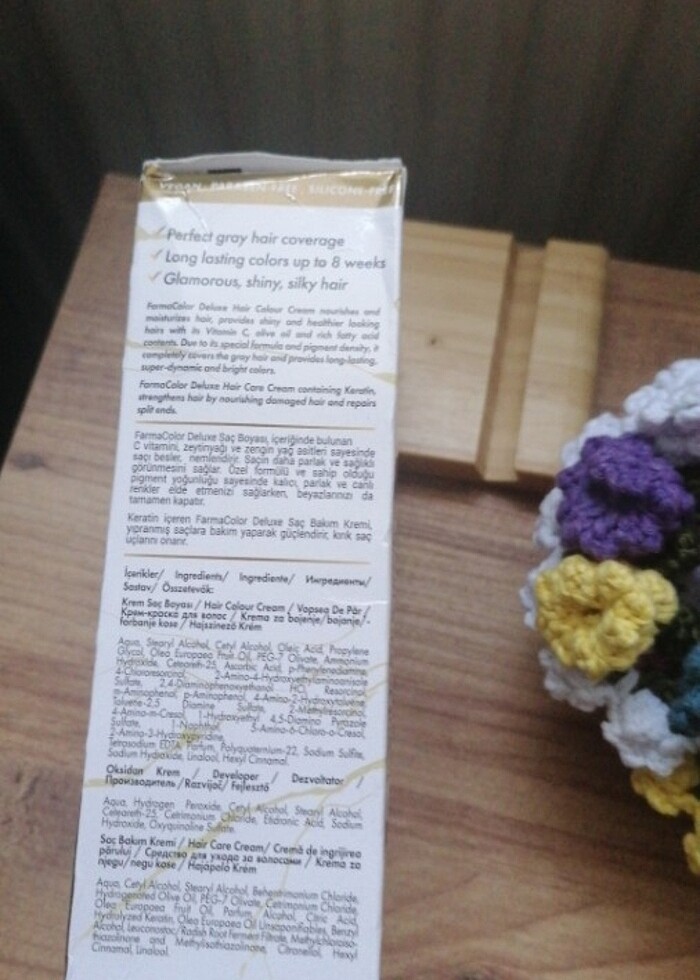 VEGAN. PARABEN FREE. SILICONE FREE
Perfect gray hair coverage
Long lasting colors up to 8 weeks
Glamorous, shiny, silky hair
FarmaColor Deluxe Hair Colour Cream nourishes and
moisturizes hair, provides shiny and healthier looking
hairs with its Vitamin C, olive oil and rich fatty acid
contents. Due to its special formula and pigment density, it
completely covers the gray hair and provides long-lasting,
super-dynamic and bright colors.
FarmaColor Deluxe Hair Care Cream containing Keratin,
strengthens hair by nourishing damaged hair and repairs
split ends.
FarmaColor Deluxe Saç Boyası, içeriğinde bulunan
C vitamini, zeytinyağı ve zengin yağ asitleri sayesinde
saçı besler, nemlendirir. Saçın daha parlak ve sağlıklı
görünmesini sağlar. Özel formülü ve sahip olduğu
pigment yoğunluğu sayesinde kalıcı, parlak ve canlı
renkler elde etmenizi sağlarken, beyazlarınızı da
tamamen kapatır.
Keratin içeren FarmaColor Deluxe Saç Bakım Kremi,
yıpranmış saçlara bakım yaparak güçlendirir, kırık saç
uçlarını onarır.
İçerikler/ Ingredients/ Ingrediente/ Ингредиенты/
Sastav/ Összetevők:
Krem Saç Boyası / Hair Colour Cream / Vopsea De Păr /
Крем-краска для волос / Krema za bojenje/bojanje/-
farbanje kose / Hajszínező Krém
Aqua, Stearyl Alcohol, Cetyl Alcohol, Oleic Acid, Propylene
Glycol, Olea Europaea Fruit Oil, PEG-7 Olivate, Ammonium
Hydroxide, Ceteareth-25, Ascorbic Acid, p-Phenylenediamine,
4-Chlororesorcinol, 2-Amino-4-Hydroxyethylaminoanisole
Sulfate, 2,4-Diaminophenoxyethanol HCl, Resorcinol,
m-Aminophenol, p-Aminophenol, 4-Amino-2-Hydroxytoluene,
Toluene-2,5 Diamine Sulfate, 2-Methylresorcinol,
4-Amino-m-Cresol, 1-Hydroxyethyl 4,5-Diamino Pyrazole
Sulfate, 1-Naphthol, 5-Amino-6-Chloro-o-Cresol,
2-Amino-3-Hydroxypyridine,
Tetrasodium EDTA, Parfum, Polyquaternium-22, Sodium Sulfite,
Sodium Hydroxide, Linalool, Hexyl Cinnamal.
Oksidan Krem / Developer / Dezvoltator /
Производитель /Razvijač/ Fejlesztő
Aqua, Hydrogen Peroxide, Cetyl Alcohol, Stearyl Alcohol,
Ceteareth-25, Cetrimonium Chloride, Etidronic Acid, Sodium
Hydroxide, Oxyquinoline Sulfate.
Saç Bakım Kremi / Hair Care Cream/ Cremă de ingrijirea
părului / Средство для ухода за волосами / Krema za
njegu/negu kose / Hajápoló Krém
Aqua, Cetyl Alcohol, Stearyl Alcohol, Behentrimonium Chloride,
Hydrogenated Olive Oil, PEG-7 Olivate, Cetrimonium Chloride,
Olea Europaea Fruit Oil, Parfum, Alcohol, Citric Acid,
Hydrolyzed Keratin, Olea Europaea Oil Unsaponifiables, Benzyl
Alcohol, Leuconostoc/Radish Root Ferment Filtrate, Methylchloroiso-
thiazolinone and Methylisothiazolinone, Citronellol, Hexyl
Cinnamal, Linalool.